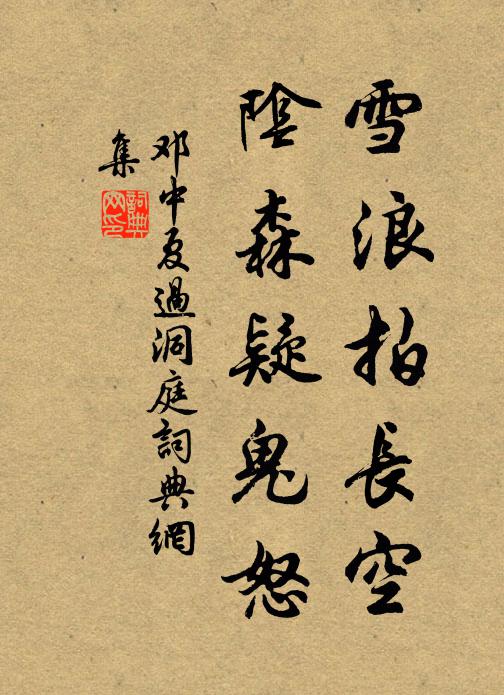 雪浪拍長空
陰森疑鬼怒
邓中夏過洞庭詞典網
集
詞典
网印